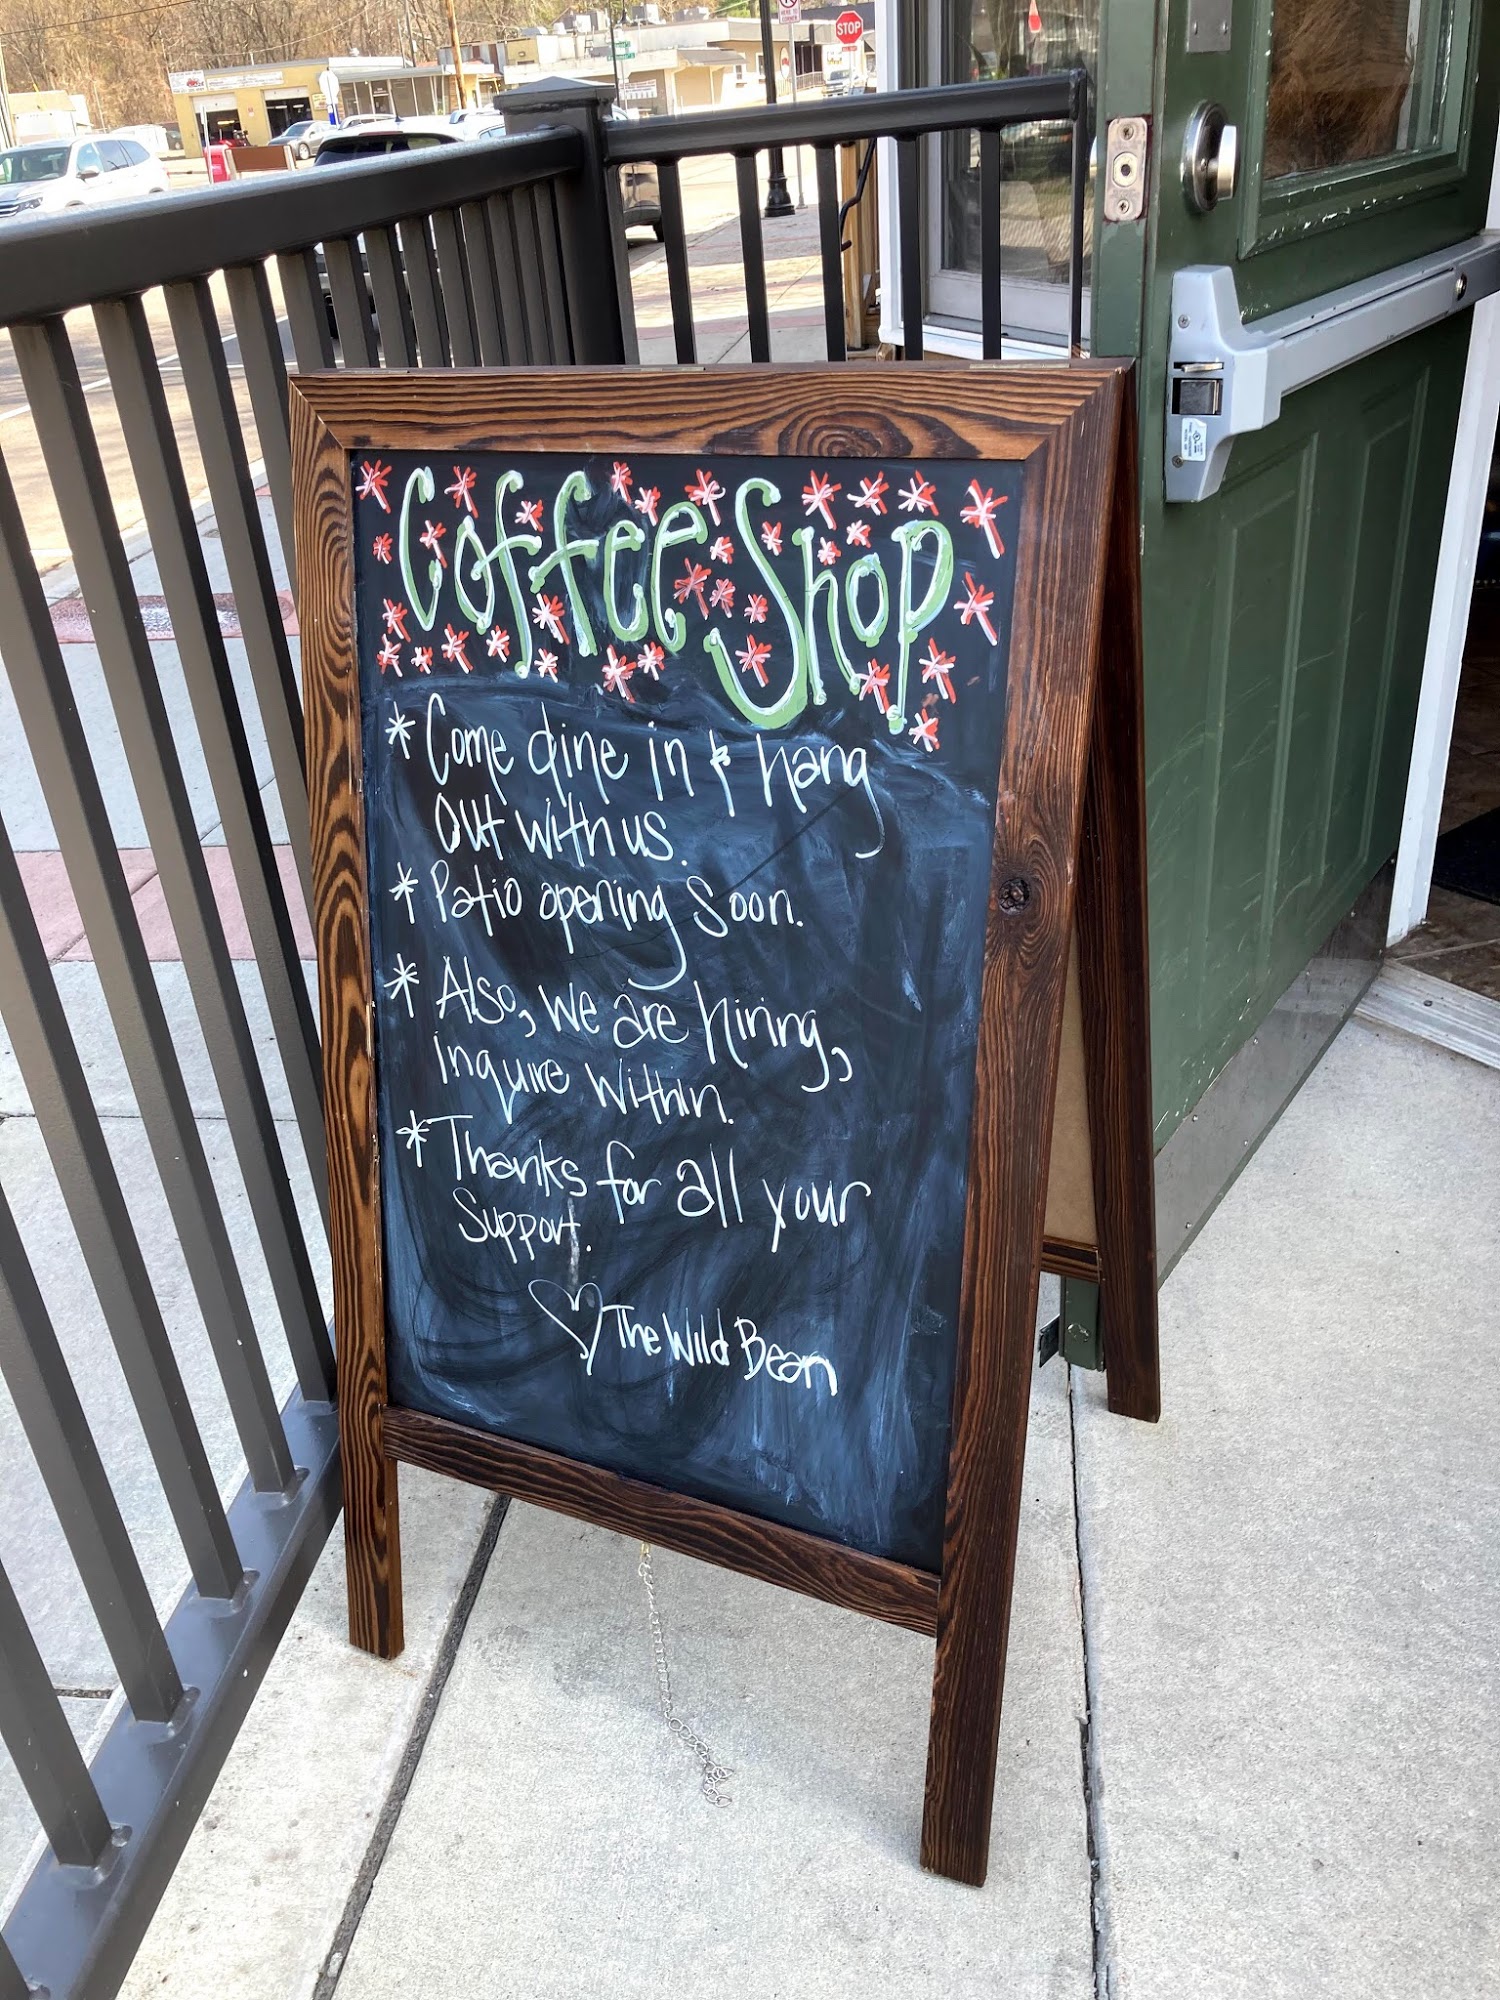 STOP
Coffee Shop
* Come dine in & hang
out with us.
* Patio opening Soon.
* Also, we are hiring,
inquire within.
* Thanks for all your
Support.
♡ The Wild Bean